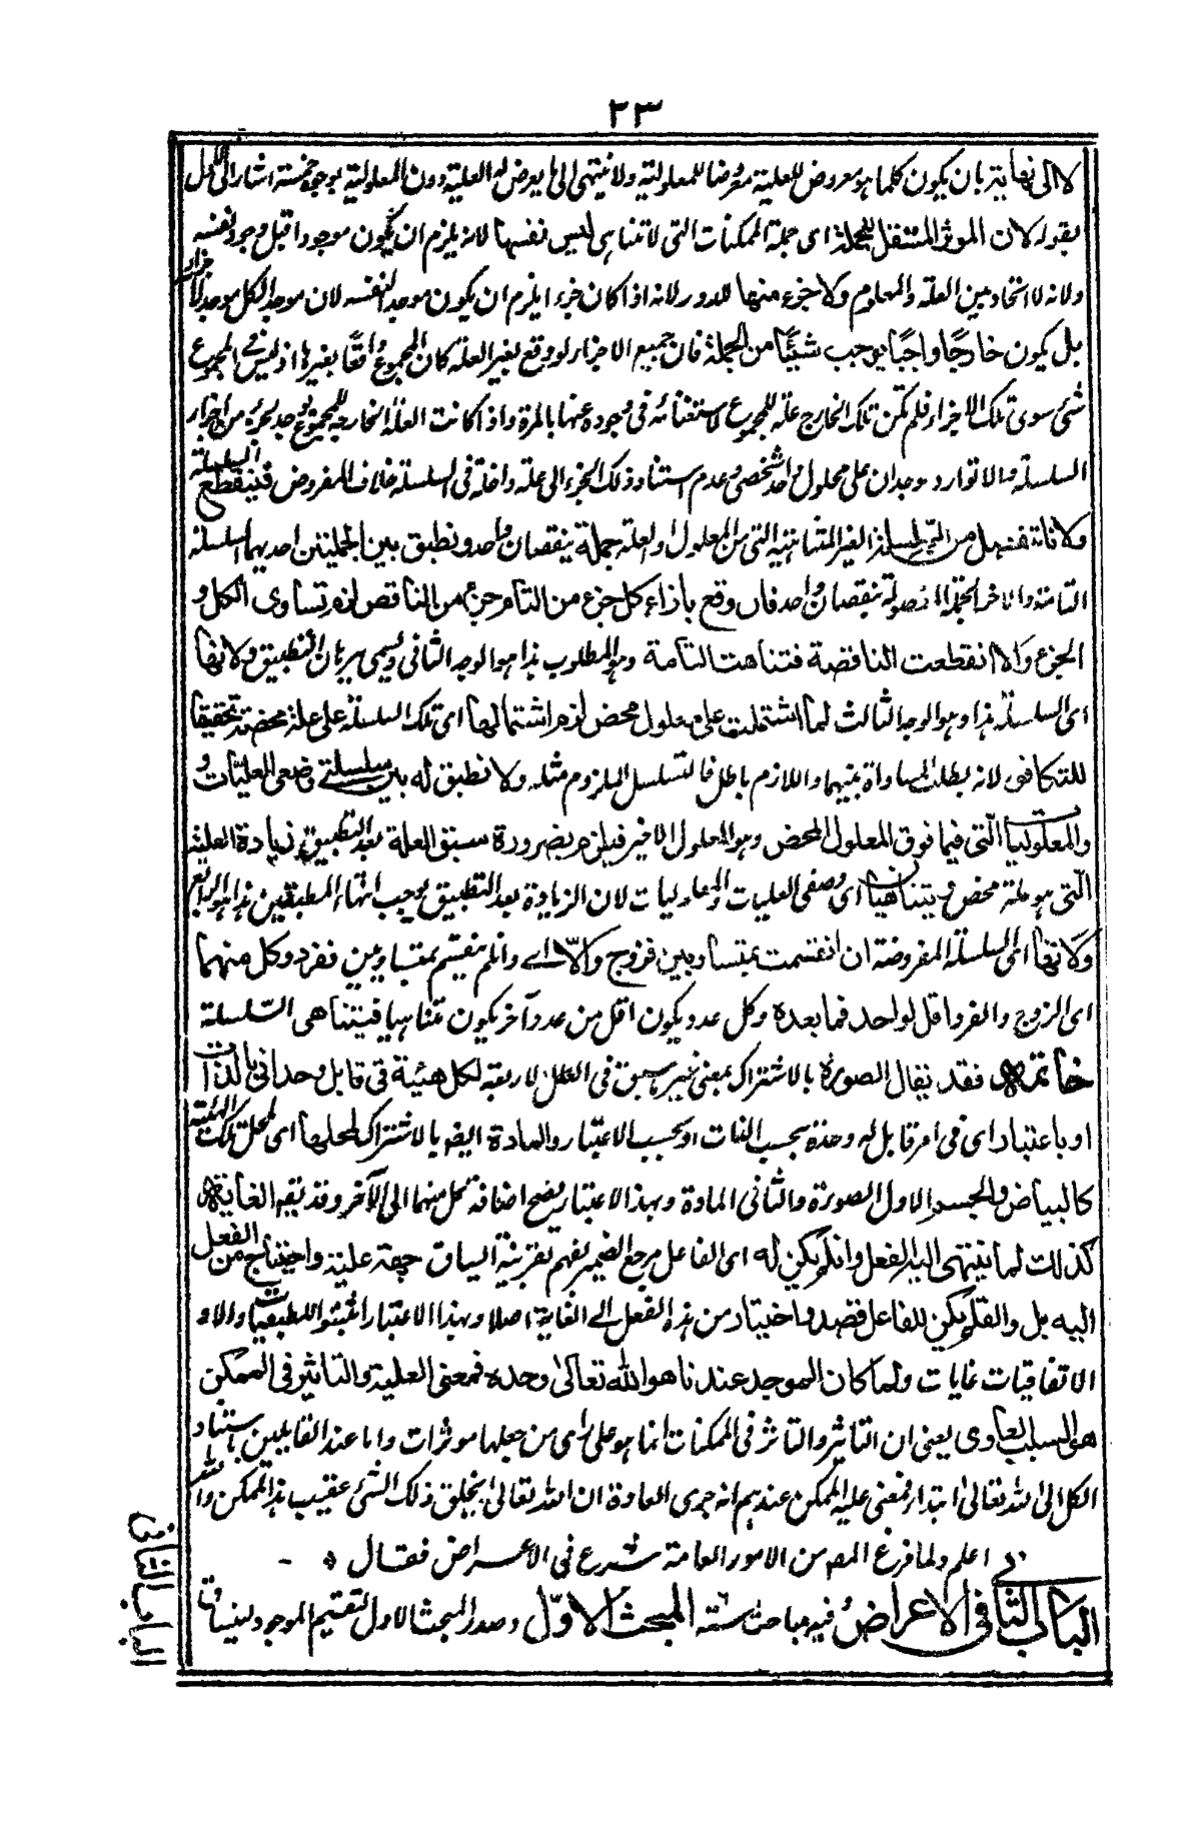 ٢٣
لا الى نهاية بان يكون كلما هو معروض للعلية معروضا للمعلولية ولا ينتهى الى ما يعرض له العلية دون المعلولية بوجوه خمسة اشار الى الاول
بقوله لان الموثر المستقل للجملة اى جملة الممكنات التى لا تتناهى ليس نفسها لانه يلزم ان يكون موجودا قبل وجود نفسه
ولانه لا اتحاد بين العلة والمعلوم ولا جزء منها للدور لانه اذا كان جزءا يلزم ان يكون موجدا لنفسه لان موجد الكل موجد لاجزائه
بل يكون خارجًا واجبًا يوجب شيئًا من الجملة فان جميع الاجزاء لو وقع بغير العلة كان المجموع واقعًا بغيرها اذ ليس فى المجموع
شئ سوى تلك الاجزاء فلم تكن تلك الخارج علة للمجموع لاستغنائه فى وجوده عنها بالمرة واذا كانت العلة الخارجة للمجموع يوجد لجزء من اجزاء
السلسلة والا توارد موجدان على معلول واحد شخصى وعدم استناد ذلك الجزء الى علة داخلة فى السلسلة خلاف المفروض فينقطع السلسلة
ولانا نفصل من السلسلة الغير المتناهية التى من المعلول او العلة جملة بنقصان واحد ونطبق بين الجملتين احديهما السلسلة
التامة والاخر الجملة الماخوذة بنقصان واحد فان وقع بازاء كل جزء من التام جزء من الناقص لزم تساوى الكل و
الجزء والا انقطعت الناقصة فتناهت التامة وهو المطلوب هذا هو الوجه الثانى ويسمى برهان التطبيق ولانها
اى السلسلة هذا وهو الوجه الثالث لما اشتملت على معلول محض لزم اشتمالها اى تلك السلسلة على علة محضة تحقيقا
للتكافى لانه بطلت المساواة بينهما واللازم باطل فالتسلسل الملزوم مثله ولا نطبق له بين سلسلتى وصفى العليات و
والمعلوليات التى فيما فوق المعلول المحض وهو المعلول الاخير فيلزم بضرورة سبق العلة بعد التطبيق زيادة العلية
التى هو علة محض ويتناهيان اى وصفى العليات والمعلوليات لان الزيادة بعد التطبيق يوجب انتهاء المطبقين هذا هو الرابع
ولانها اى السلسلة المفروضة ان انقسمت بمتساويين فزوج والّا اے وان لم ينقسم بمتساويين ففرد وكل منهما
اى الزوج والفرد اقل لواحد فما بعده وكل عدد يكون اقل من عدد آخر يكون متناهيا فيتناهى السّلسلة
خاتمة فقد يقال الصورة بالاشتراك بمعنى غير ما سبق فى العلل الاربعة لكل هيئة فى قابل وحدانى بالذات
او باعتبار اى فى امر قابل له وحدة بحسب الذات او بحسب الاعتبار والمادة ايضو بالاشتراك لمحلها اى لمحل تلك الهيئة
كالبياض والجسم الاول الصورة والثانى المادة وبهذا الاعتبار يصح اضافة كل منهما الى الآخر وقد يقال الغاية
كذلك لما ينتهى اليه الفعل وان لم يكن له اى الفاعل مرجع الضمير يفهم بقرينة السياق جهة علية واحتياج من الفعل
اليه بل والقلم يكن للفاعل قصد واختيار من هذه الفعل الے الغاية اصلا وبهذا الاعتبار اثبتوا للطبعيات والا و
الاتفاقيات غايات ولما كان الموجد عندنا هو الله تعالى وحده فمعنى العلية والتاثير فى الممكن
هو السبب العادى يعنى ان التاثير والتاثر فى الممكنات انما هو على راى من جعلها موثرات واما عند القايلين باستناد
الكل الى الله تعالى ابتداء فمعنى علية الممكن عندهم انه جرى العادة ان الله تعالى يخلق ذلك الشئ عقيب هذا الممكن والله
اعلم ولما فرغ المص من الامور العامة شرع فى الاعراض فقال
الباب الثانى فى الاعراض وفيه مباحث ستة المبحث الاوّل وصدر المبحث الاول لتقسيم الموجود لينساق
الباب الثانى